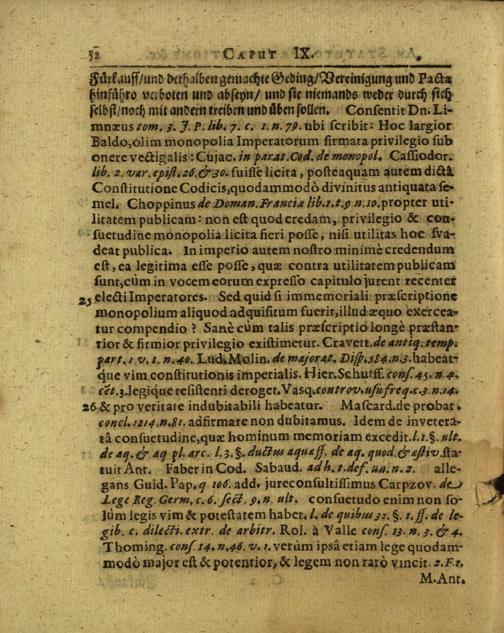 52 CAPUT IX.
Fürkauff/und derhalben gemachte Geding/Vereinigung und Pacta
hinführo verboten und abseyn/ und sie niemands weder durch sich
selbst/noch mit andern treiben und üben sollen. Consentit Dn. Li-
mnæus tom. 3. J. P. lib. 7. c. 1. n. 79. ubi scribit: Hoc largior
Baldo, olim monopolia Imperatorum firmata privilegio sub
onere vectigalis: Cujac. in parat. Cod. de monopol. Cassiodor.
lib. 2. var. epist. 26. & 30. fuisse licita, posteaquam autem dictâ
Constitutione Codicis, quodammodò divinitus antiquata se-
mel. Choppinus de Doman. Franciæ lib. 1. t. 9. n. 10. propter uti-
litatem publicam: non est quod credam, privilegio & con-
suetudine monopolia licita fieri posse, nisi utilitas hoc sva-
deat publica. In imperio autem nostro minimè credendum
est, ea legitima esse posse, quæ contra utilitatem publicam
sunt, cùm in vocem eorum expresso capitulo jurent recenter
25 electi Imperatores. Sed quid si immemoriali præscriptione
monopolium aliquod adquisitum fuerit, illud æquo exercea-
tur compendio? Sanè cùm talis præscriptio longè præstan-
tior & firmior privilegio existimetur. Cravett. de antiq. temp.
part. 1. v. 1. n. 40. Lud. Molin. de majorat. Disp. 184. n. 3. habeat-
que vim constitutionis imperialis. Hier. Schurff. cons. 45. n. 4.
cēt. 3. legique resistenti deroget. Vasq. controv. usufreq. c. 3. n. 14.
26 & pro veritate indubitabili habeatur. Mascard. de probat.
concl. 1214. n. 81. adfirmare non dubitamus. Idem de invetera-
tâ consuetudine, quæ hominum memoriam excedit. l. 1. §. ult.
de aq. & aq pl. arc. l. 3. §. ductus aquæ ff. de aq. quod. & æstiv sta-
tuit Ant. Faber in Cod. Sabaud. ad h. t. def. un. n. 2. alle-
gans Guid. Pap. q 106. add. jureconsultissimus Carpzov. de
Lege Reg. Germ. c. 6. sect. 9. n. ult. consuetudo enim non so-
lùm legis vim & potestatem habet. l. de quibus 32. §. 1. ff. de le-
gib. c. dilecti. extr. de arbitr. Rol. à Valle cons. 13. n. 3. & 4.
Thoming. cons. 14. n. 46. v. 1. verùm ipsâ etiam lege quodam-
modò major est & potentior, & legem non rarò vincit. 2. F. 1.
M. Ant.